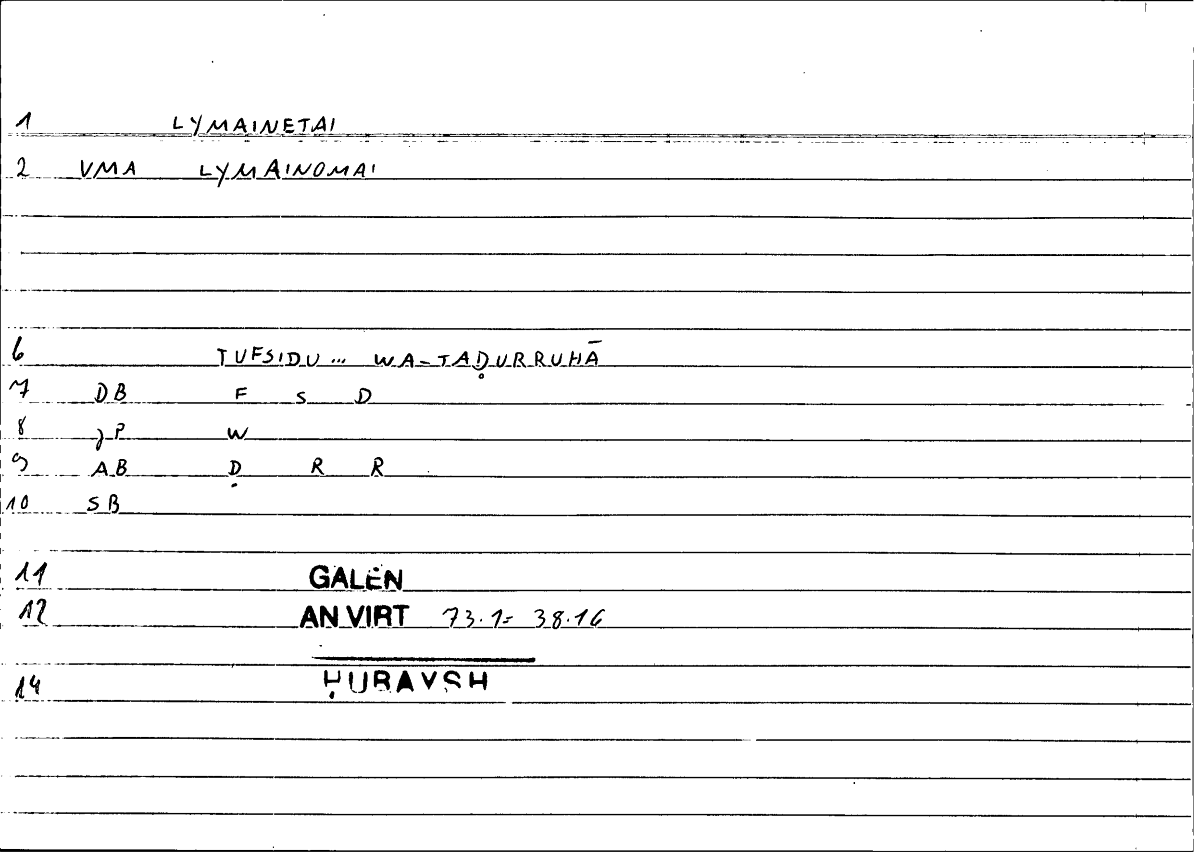 1 LYMAINETAI
2 VMA LYMAINOMAI
6 TUFSIDU... WA-TAḌURRUHĀ
7 DB F S D
8 γP W
9 AB Ḍ R R
10 SB
11 GALEN
12 AN VIRT 73.1= 38.16
14 ḤUBAYSH